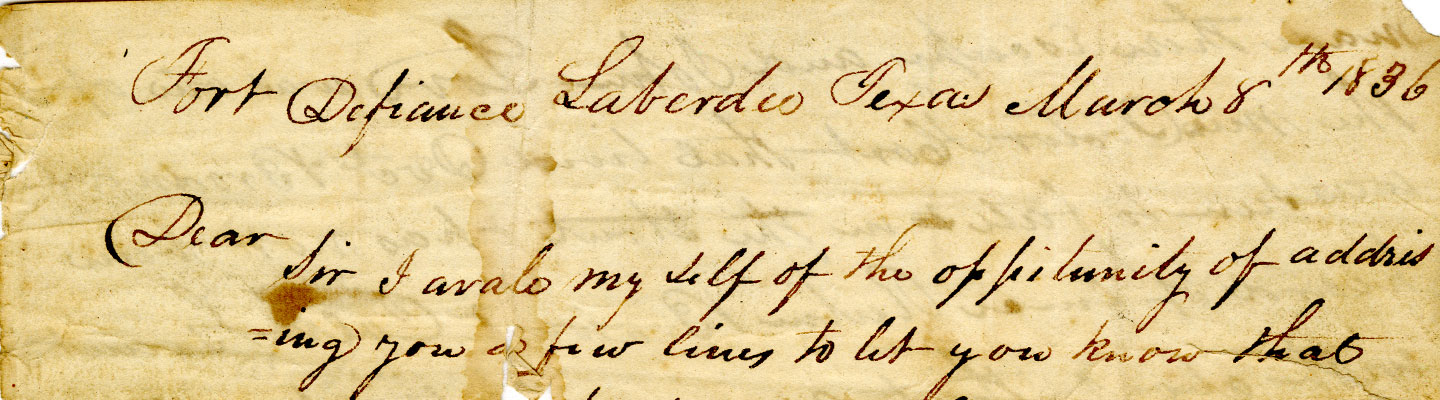 Fort Defiance Laberdee Texas March 8th 1836
Dear
Sir I avale my self of the oppitunity of addris
=ing you a few lines to let you know that